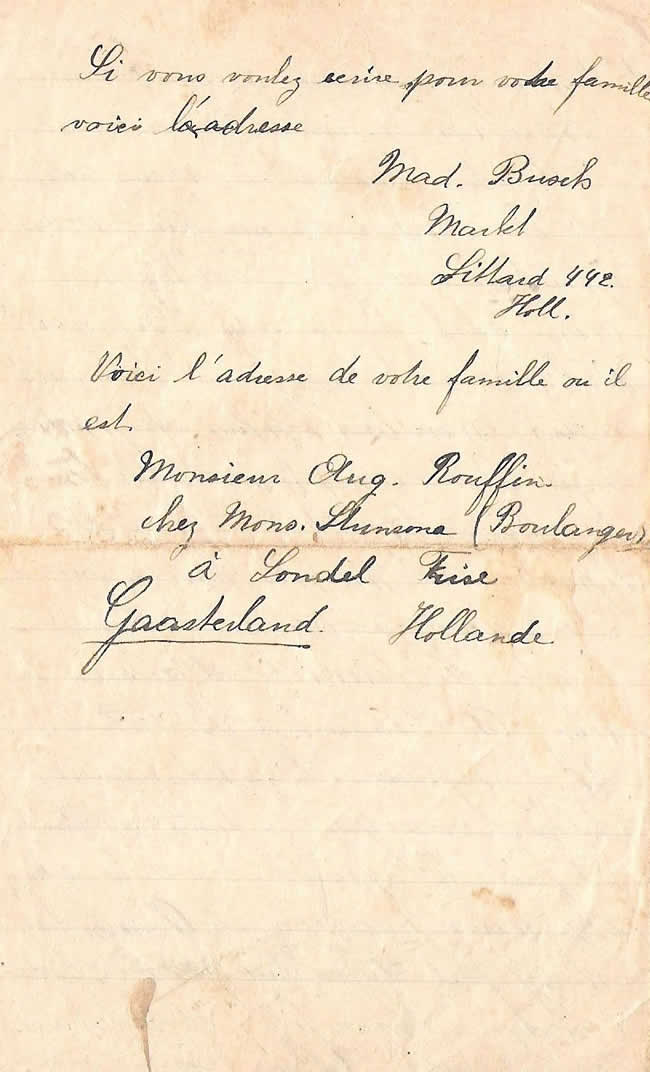 Si vous voulez ecrire pour votre famille
voici l'adresse
Mad. Busch
Markt
Sittard 442.
Holl.
Voici l'adresse de votre famille ou il
est.
Monsieur Aug. Rouffin.
chez Mons. (Boulanger)
à Sondel Frise
Gaasterland. Hollande.